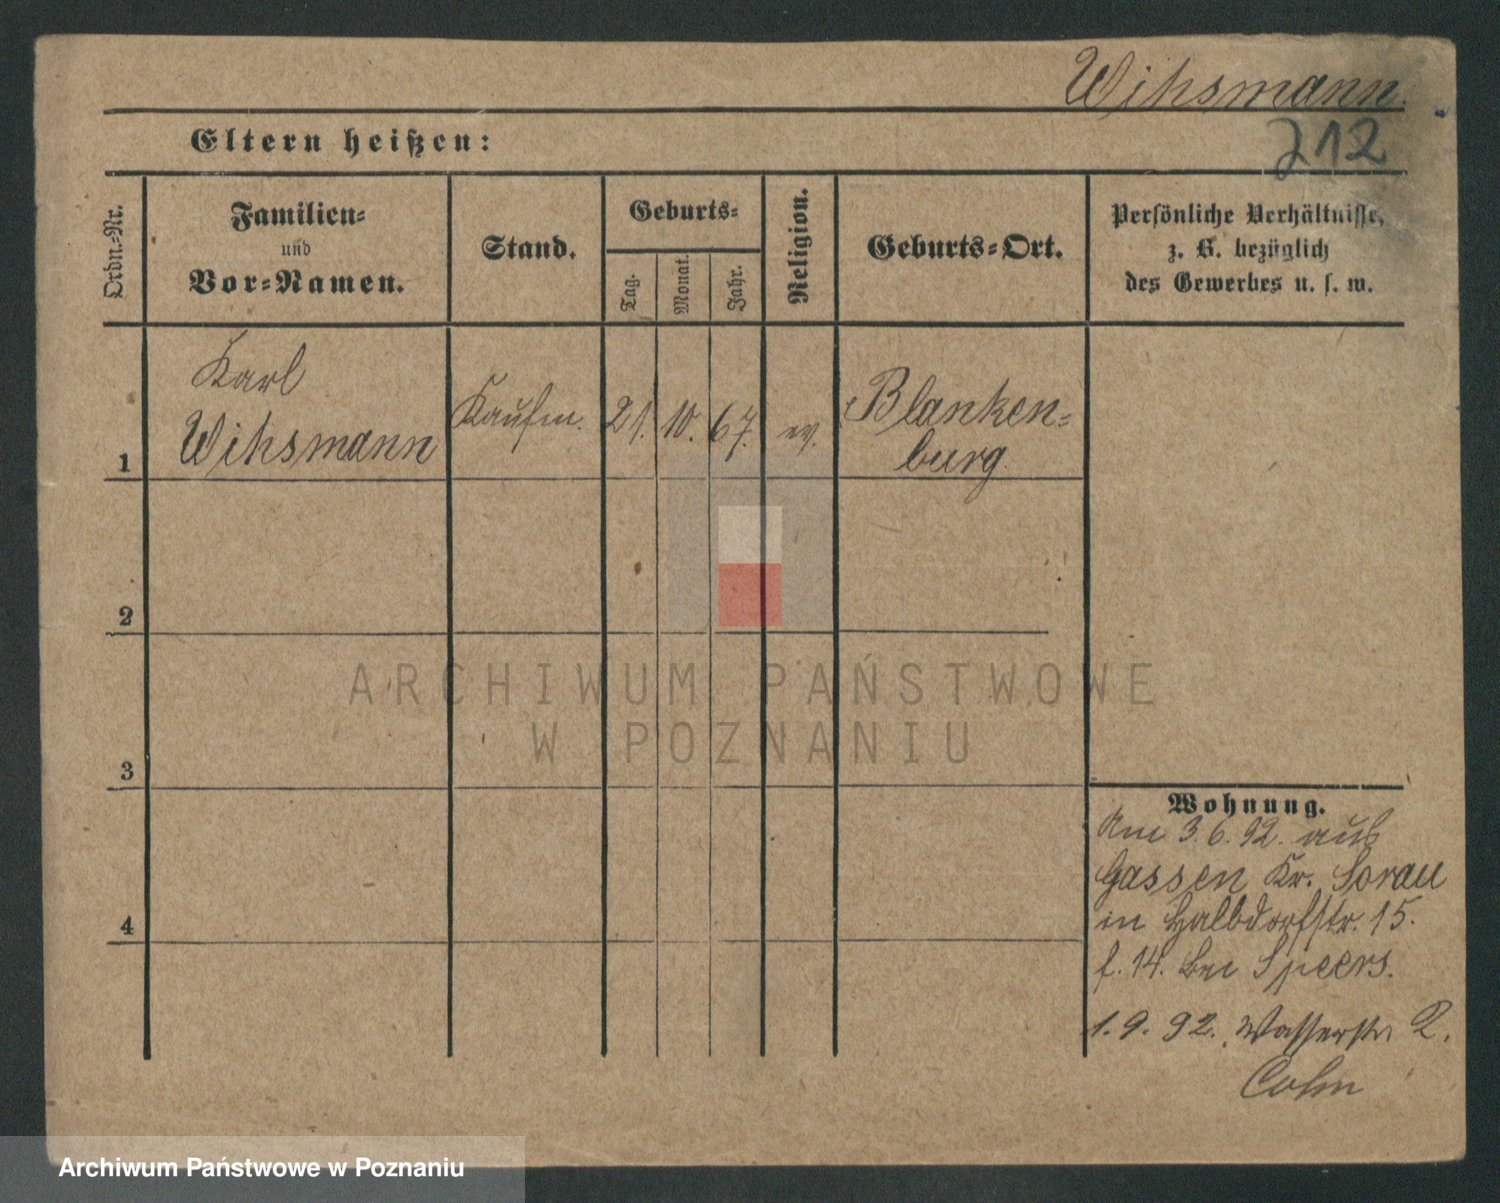 Wihsmann.
212
Eltern heißen:
Ordn.-Nr.
Familien-
und
Vor-Namen.
Stand.
Geburts-
Tag.
Monat.
Jahr.
Religion.
Geburts-Ort.
Persönliche Verhältnisse,
z. B. bezüglich
des Gewerbes u. s. w.
Karl
Wihsmann
Kaufm. 21. 10. 67. ev.
Blanken-
burg.
1
2
3
4
Wohnung.
Am 3.6.92. aus
Gassen Kr. Sorau
in Halbdorfstr. 15.
f. 14. bei Speers.
1.9.92. Wasserstr. 2.
Cohn
ARCHIWUM PAŃSTWOWE
W POZNANIU
Archiwum Państwowe w Poznaniu